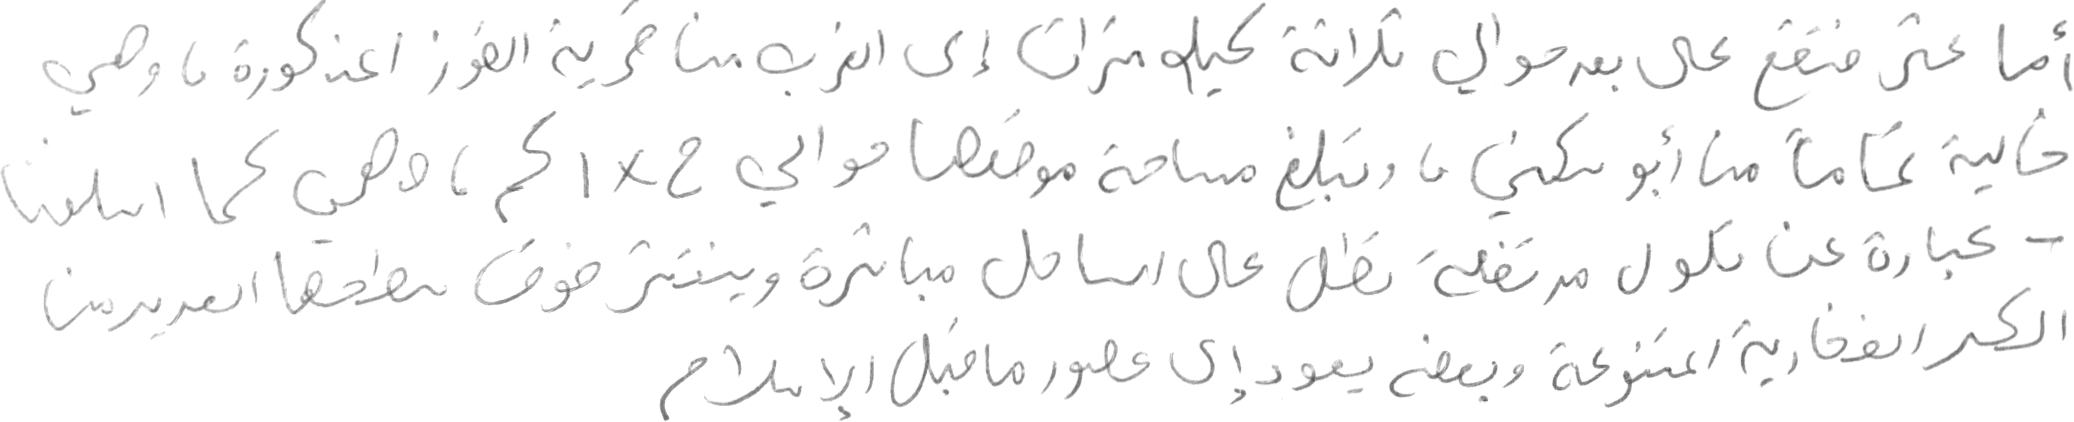 أما عثر فتقع على بعد حوالي ثلاثة كيلو مترات إلى الغرب من قرية القوز المذكورة ، وهي
خالية تماماً من أبو سكين ، وتبلغ مساحة موقعها حوالي ٢ × ١ كم ، وهي كما أسلفنا
– عبارة عن تلول مرتفعة تطل على الساحل مباشرة وينتشر فوق سطحها العديد من
الكسر الفخارية المتنوعة وبعضه يعود إلى عصور ما قبل الإسلام